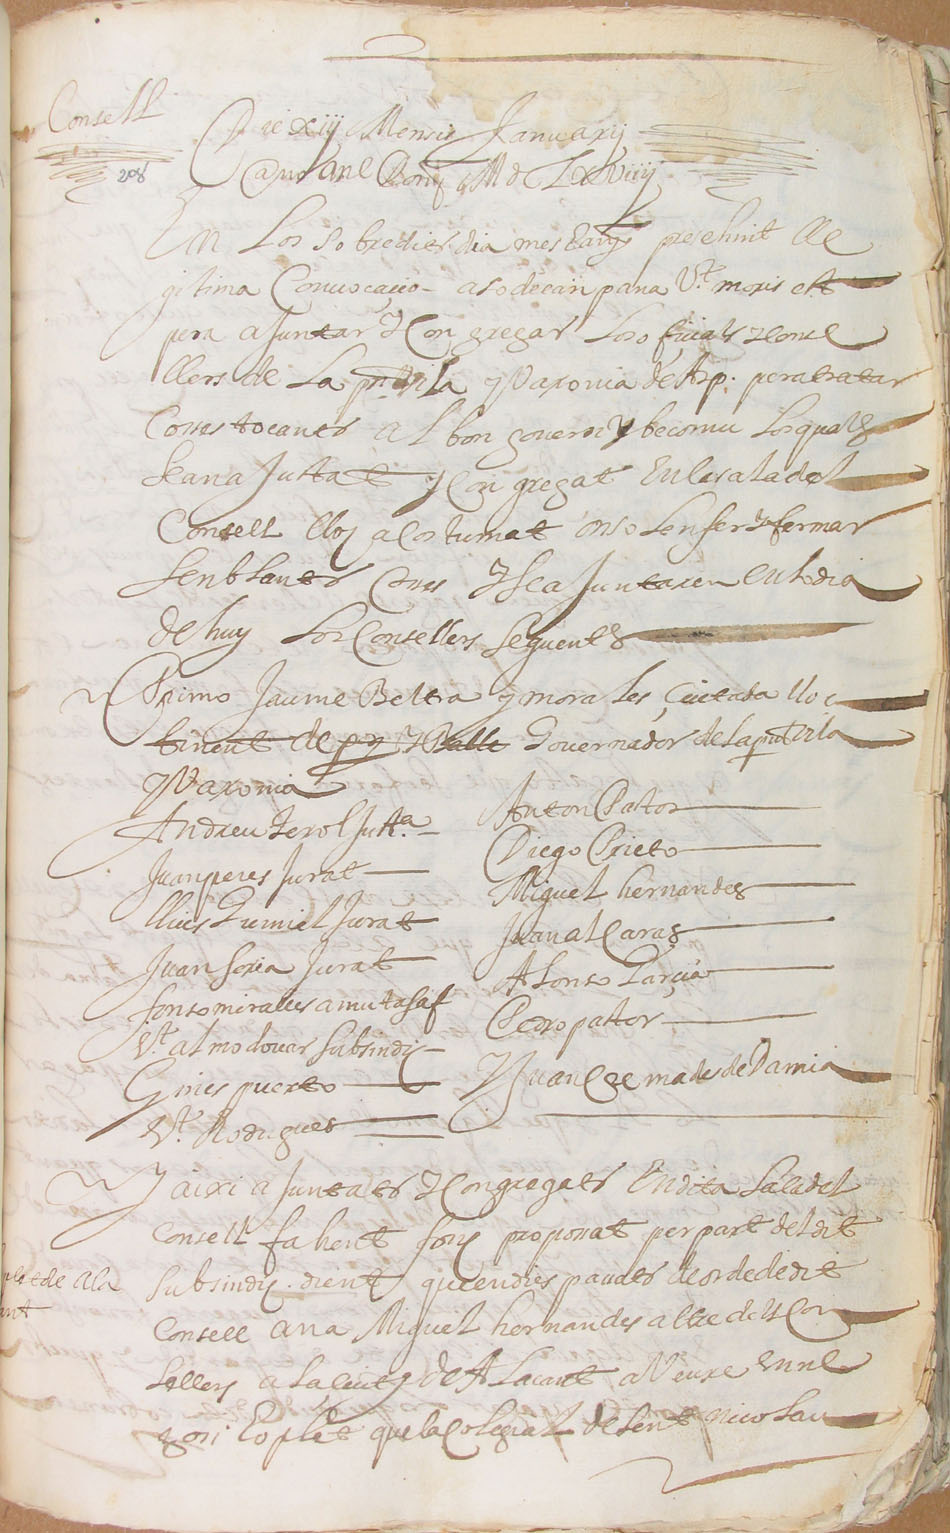 Consell
208
Die xiij Mensis Januarij
Anno a Nt Domj M dc Lxviiij
En Los sobredits dia mes E anys presehint lle
gitima Convocacio a so de campana Vt moris est
pera ajuntar y Congregar Los oficials y conse
llers de La pnt Vila y Varonia de Asp. pera tratar
Coses tocants al bon govern y becomu Los quals
Se an ajuntat y Congregat En la sala del
Consell lloch acostumat on se solen fer y fermar
Senblants Coses y Se ajuntaren en lo dia
de huy Los Consellers Seguents
Primo Jaume Beltra y morales Ciutada lloc
tinent de pr y Balle Governador de La pnt Vila
y Varonia
Andreu Terol Justa.
Juan peres Jurat
lluis Gumiel Jurat
Juan Soria Jurat
fonso miralles amutasaf
Vt. almodovar Subsindich
Gines puerto
Vt. Rodrigues
Anton Pastor
Diego Prieto
Miguel hernandes
Juan alCaras
Alonso Garcia
Pedro pastor
y Juan Cremades de Damia
y aixi ajuntats y Congregats En dita Sala del
Consell fahent fonch proposat per part del dit
Subsindich dient que en dies pasats de orde de dit
Consell ana Miguel hernandes altre dels Con
Sellers a la ciutat de Alacant a Veure En
que la Colegial de Sent Nicolau
plet de Ala
ant